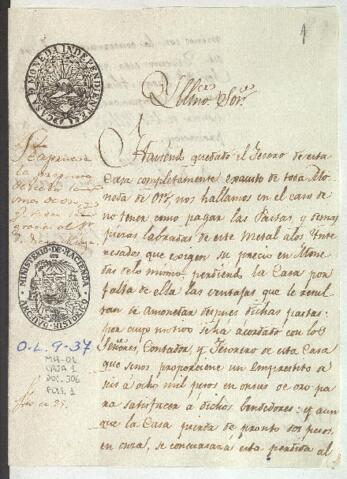 1
CASA D MONEDA INDEPENDIENTE
Yllmo. Sor.
Haviendo quedado el Tesoro de esta
Casa completamente exausto de toda Mo-
neda de Oro, nos hallamos en el caso de
no tener como pagar las Pastas, y demas
piezas labradas de este Metal a los Inte-
resados que exigen su precio en Mone-
das de lo mismo, perdiendo la Casa por
falta de ella las ventajas que le resul-
tan de amonedar despues dichas pastas:
por cuyo motivo se ha acordado con los
Señores, Contador, y Tesorero de esta Casa
que se nos proporcione un Emprestito de
seis a ocho mil pesos en onzas de oro pa-
ra satisfacer a dichos bendedores: y aun
que la Casa pierda de pronto sus pesos,
en onzas, se compensará esta perdida al
MINISTERIO DE HACIENDA
ARCHIVO HISTORICO
O.L. 9-37
MH-OL
CAJA 1
DOC. 306
FOLS. 1